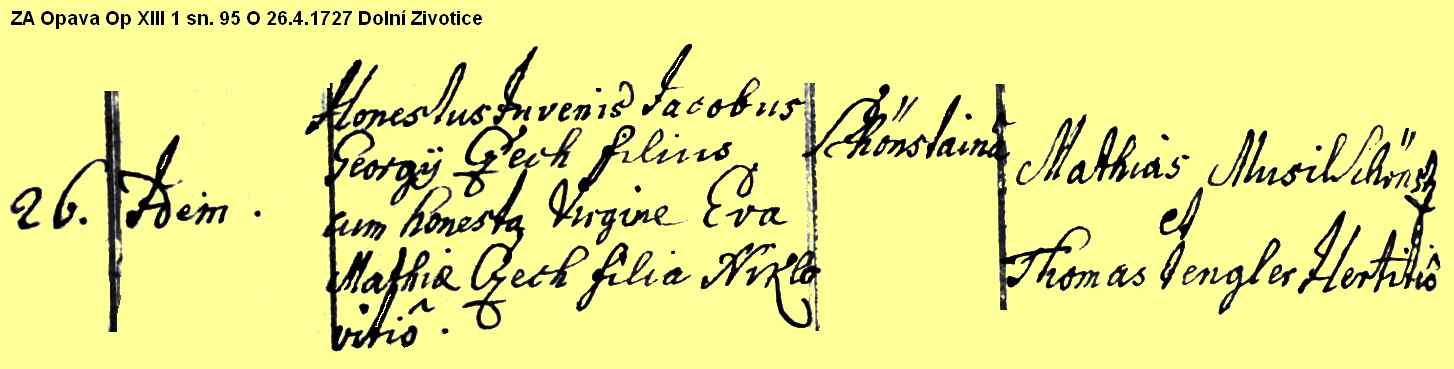 ZA Opava Op XIII 1 sn. 95 O 26.4.1727 Dolní Zivotice
26. Idem.
Honestus Juvenis Jacobus
Georgÿ Czech filius
cum honesta Virgine Eva
Mathiæ Czech filia Niklo
vitiô.
Schönstainâ
Mathias Musil Schönst
et
Thomas Tengler Hertitiô